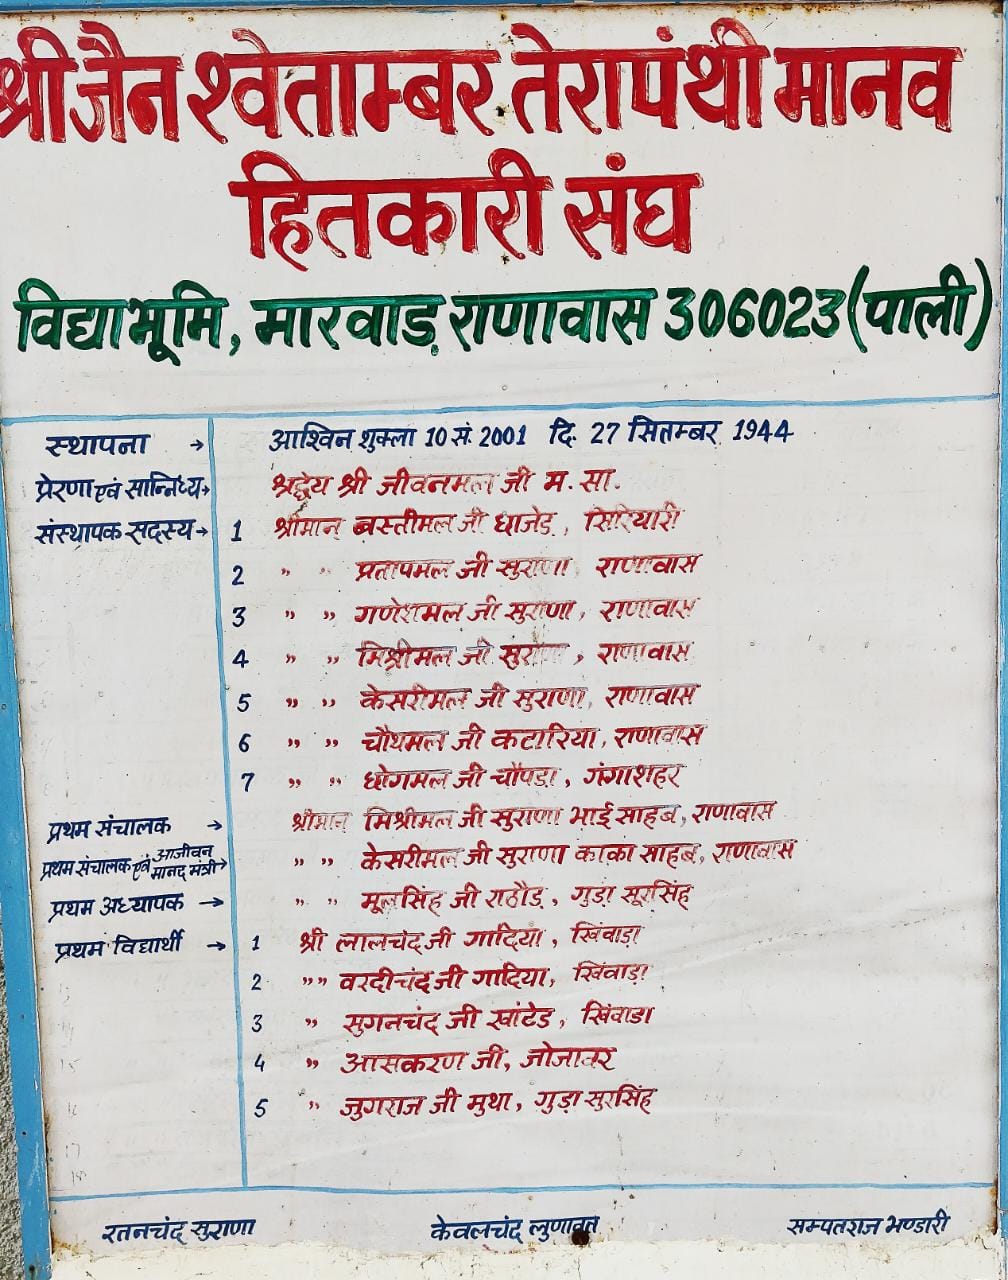 श्री जैन श्वेताम्बर तेरापंथी मानव
हितकारी संघ
विद्याभूमि, मारवाड़ राणावास 306023 (पाली)
स्थापना → आश्विन शुक्ला 10 सं. 2001 दि. 27 सितम्बर 1944
प्रेरणा एवं सान्निध्य → श्रद्धेय श्री जीवनमल जी म. सा.
संस्थापक सदस्य → 1 श्रीमान् बस्तीमल जी छाजेड़, सिरियारी
2 ,, ,, प्रतापमल जी सुराणा, राणावास
3 ,, ,, गणेशमल जी सुराणा, राणावास
4 ,, ,, मिश्रीमल जी सुराणा, राणावास
5 ,, ,, केसरीमल जी सुराणा, राणावास
6 ,, ,, चौथमल जी कटारिया, राणावास
7 ,, ,, छोगमल जी चौपड़ा, गंगाशहर
प्रथम संचालक → श्रीमान् मिश्रीमल जी सुराणा भाई साहब, राणावास
प्रथम संचालक एवं आजीवन मानद मंत्री → ,, ,, केसरीमल जी सुराणा काका साहब, राणावास
प्रथम अध्यापक → ,, ,, मूलसिंह जी राठौड़, गुड़ा सूरसिंह
प्रथम विद्यार्थी → 1 श्री लालचंद जी गादिया, खिंवाड़ा
2 ,, ,, वरदीचंद जी गादिया, खिंवाड़ा
3 ,, सुगनचंद जी खांटेड, खिंवाडा
4 ,, आसकरण जी, जोजावर
5 ,, जुगराज जी मुथा, गुड़ा सुरसिंह
रतनचंद सुराणा केवलचंद लुणावत सम्पतराज भण्डारी